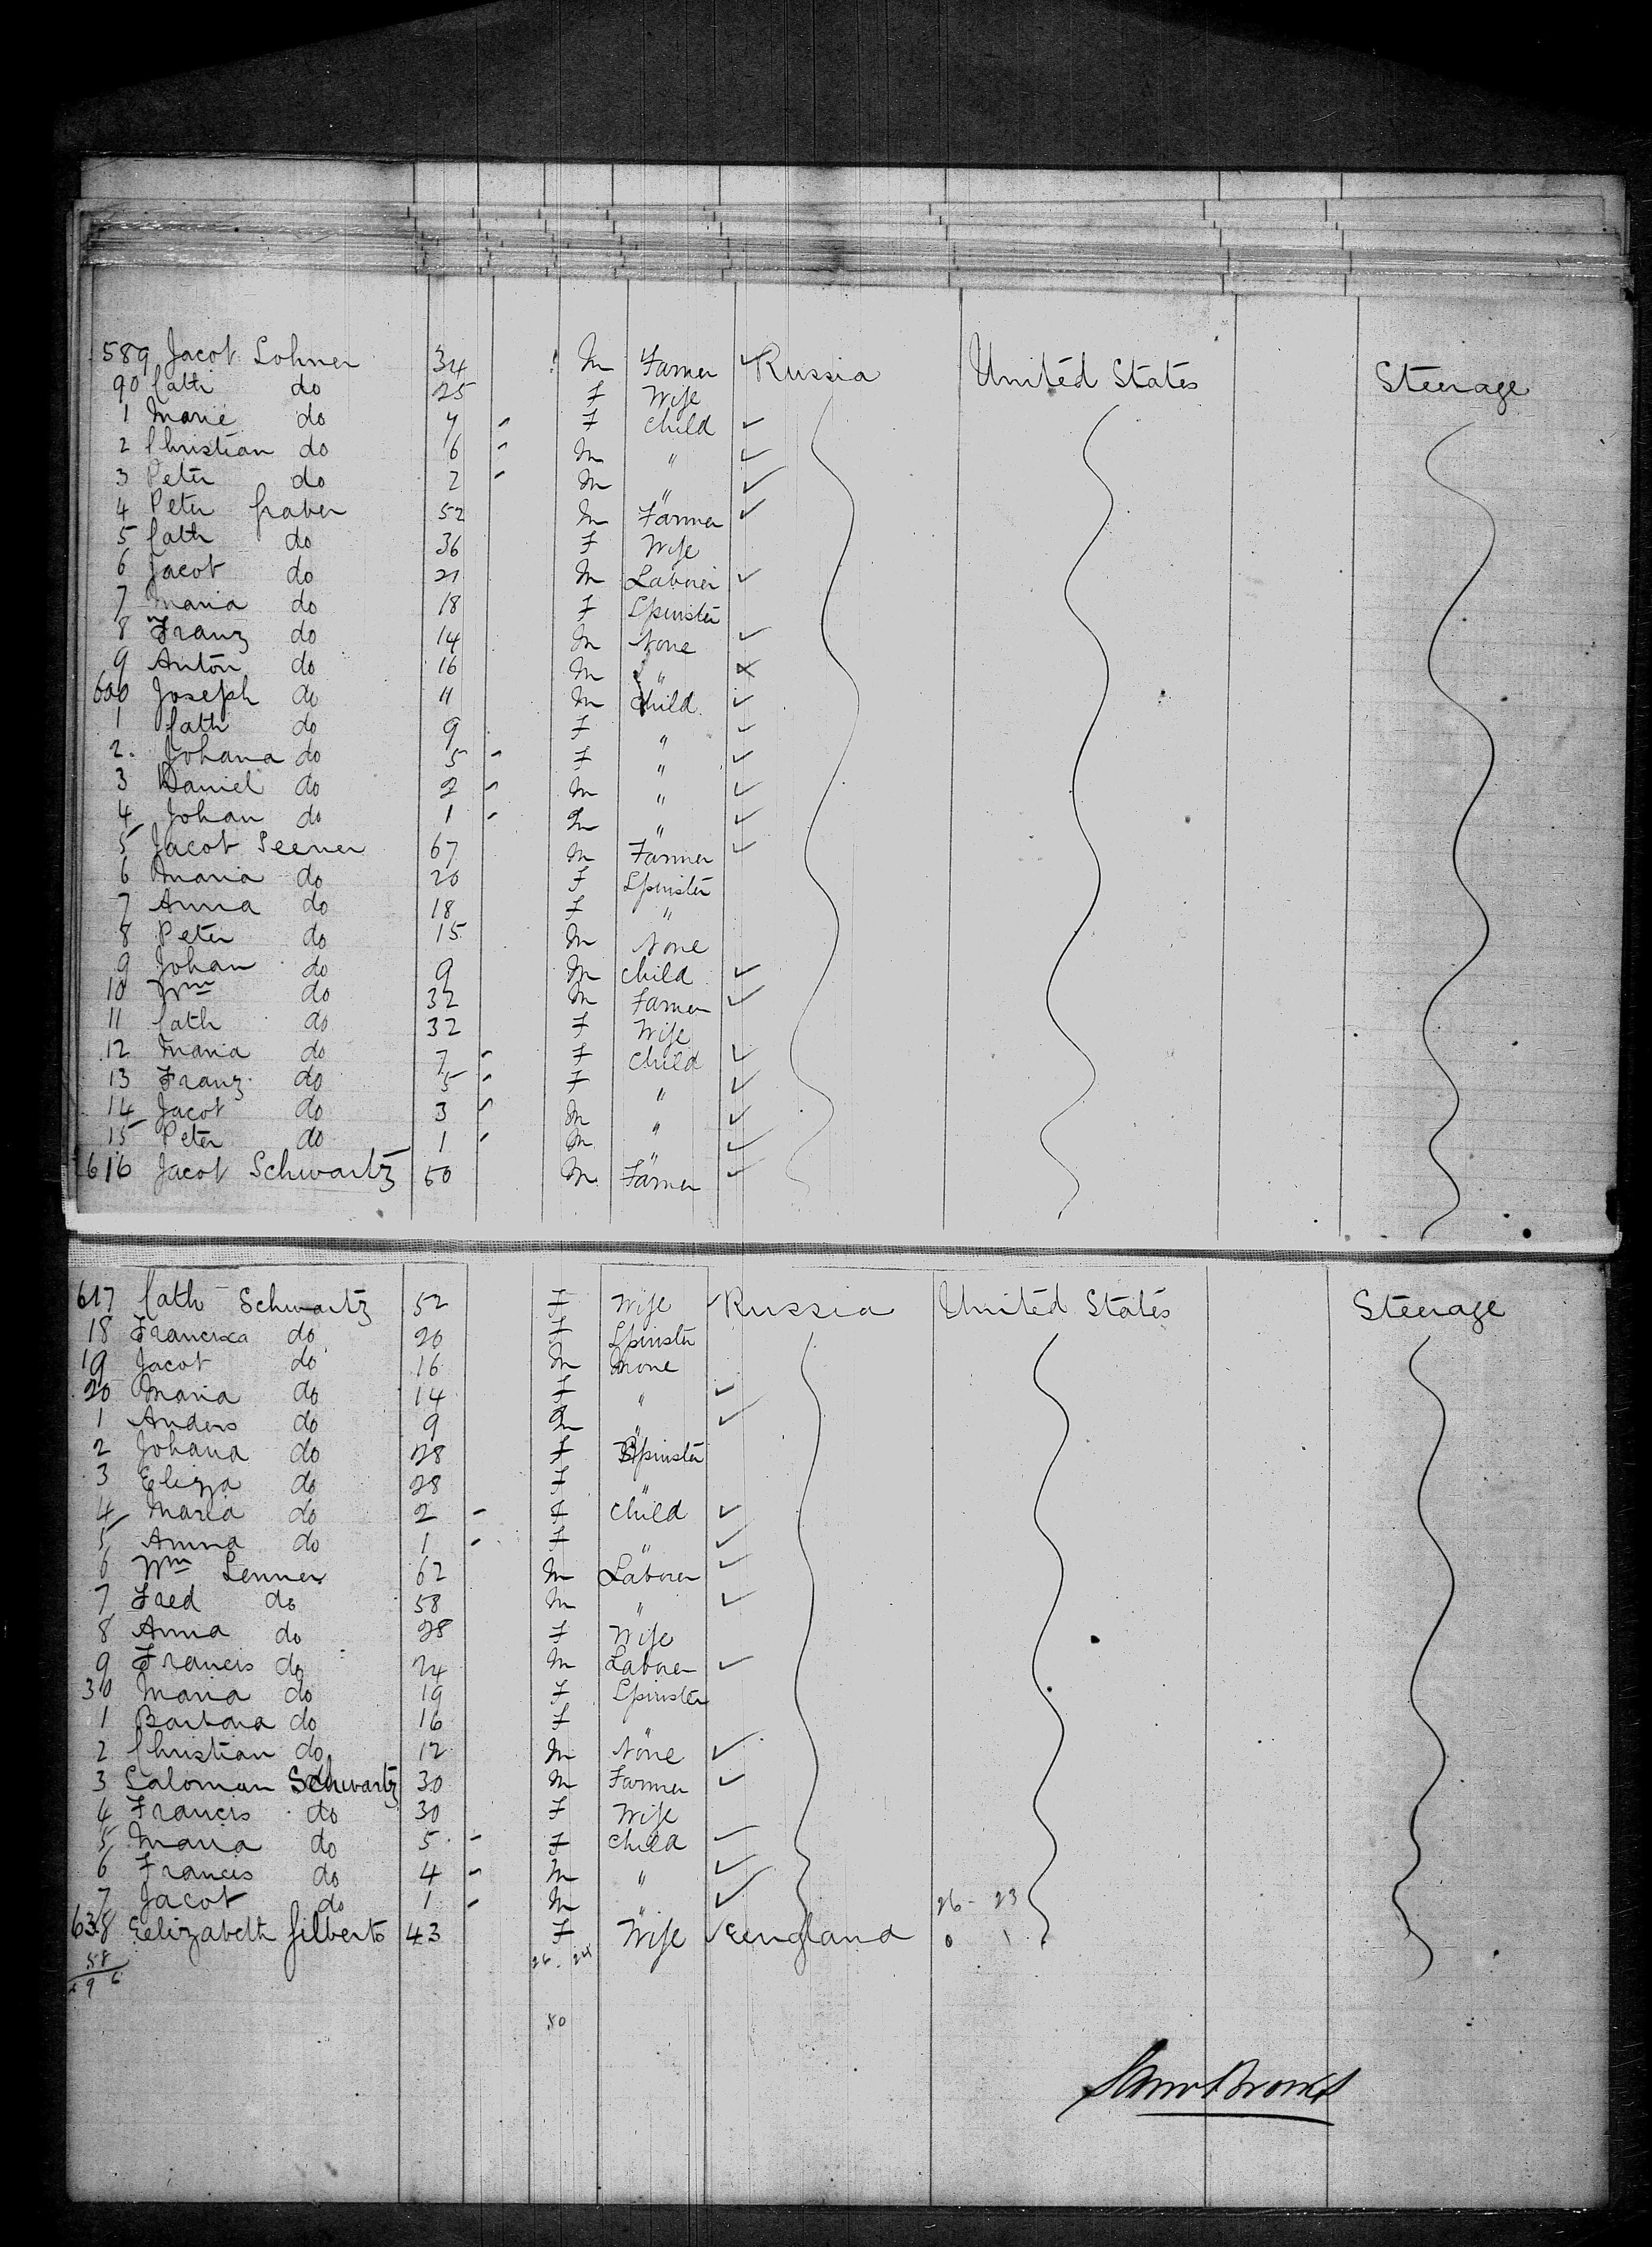 589 Jacob Lohner 34 M Farmer ✓ Russia United States Steerage
90 Cath do 25 F Wife
1 Marie do 7 " F Child ✓
2 Christian do 6 " M " ✓
3 Peter do 2 " M " ✓
4 Peter Graber 52 M Farmer ✓
5 Cath do 36 F Wife
6 Jacob do 21 M Laborer ✓
7 Maria do 18 F Spinster
8 Franz do 14 M None ✓
9 Anton do 16 M " ✓
600 Joseph do 11 M Child ✓
1 Cath do 9 F " ✓
2 Johana do 5 " F " ✓
3 Daniel do 2 " M " ✓
4 Johan do 1 " M " ✓
5 Jacob 67 M Farmer ✓
6 Maria do 20 F Spinster
7 Anna do 18 F "
8 Peter do 15 M None
9 Johan do 9 M Child ✓
10 Wm do 32 M Farmer ✓
11 Cath do 32 F Wife
12 Maria do 7 " F Child ✓
13 Franz do 5 " F " ✓
14 Jacob do 3 " M " ✓
15 Peter do 1 " M " ✓
616 Jacob Schwartz 50 M Farmer ✓
617 Cath Schwartz 52 F Wife ✓ Russia United States Steerage
18 Francisca do 20 F Spinster
19 Jacob do 16 M None
20 Maria do 14 F " ✓
1 Anders do 9 M " ✓
2 Johana do 28 F Spinster
3 Eliza do 28 F "
4 Maria do 2 - F Child ✓
5 Anna do 1 - F " ✓
6 Wm Lenner 62 M Laborer ✓
7 Fred do 58 M " ✓
8 Anna do 28 F Wife
9 Francis do 24 M Laborer ✓
30 Maria do 19 F Spinster
1 Barbara do 16 F "
2 Christian do 12 M None ✓
3 Saloman Schwartz 30 M Farmer ✓
4 Francis do 30 F Wife
5 Maria do 5 - F Child ✓
6 Francis do 4 - M " ✓
7 Jacob do 1 - M " ✓ 26 - 23
638 Elizabeth Gilberts 43 F Wife ✓ England 0 1
58 26 . 24
696
50